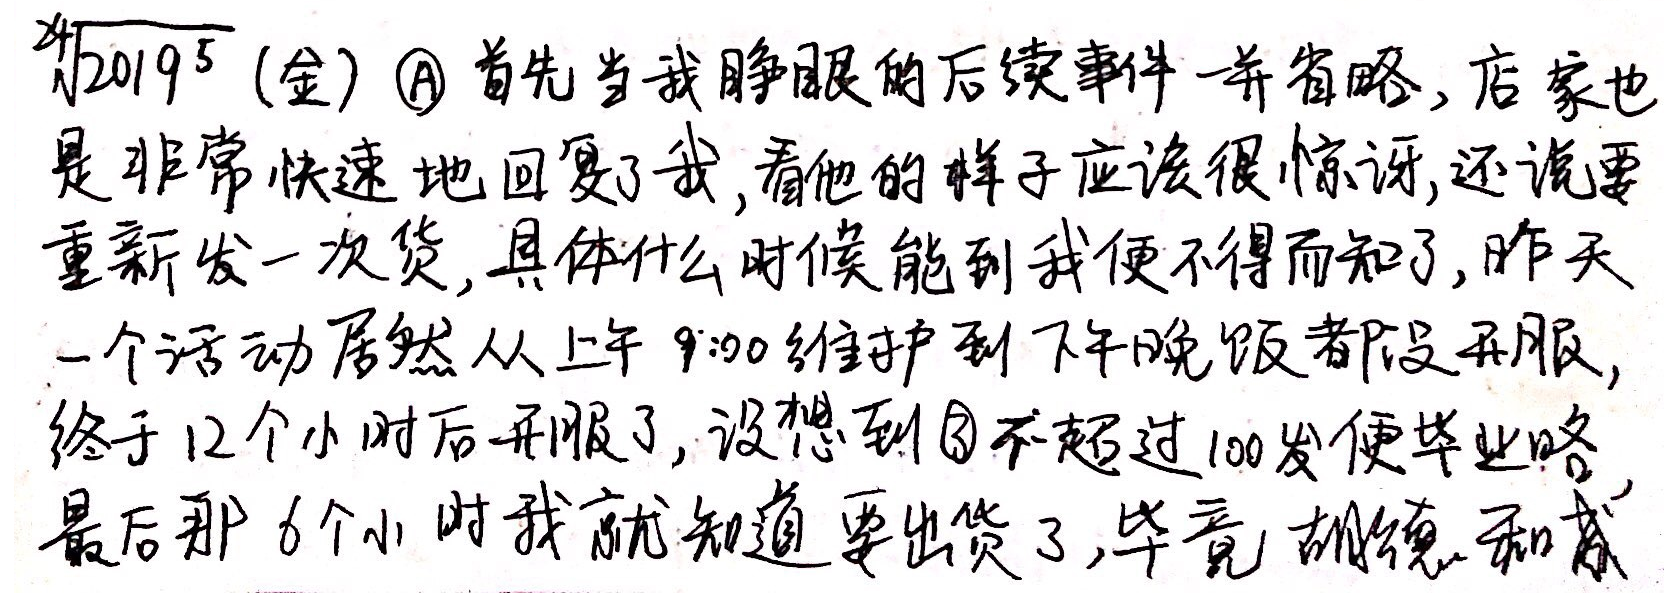 24√2019⁵ (金) Ⓐ 首先当我睁眼的后续事件一并省略,店家也
是非常快速地回复了我,看他的样子应该很惊讶,还说要
重新发一次货,具体什么时候能到我便不得而知了,昨天
一个活动居然从上午9:00维护到下午晚饭都没开服,
终于12个小时后开服了,没想到③不超过100发便毕业咯,
最后那6个小时我就知道要出货了,毕竟胡德和